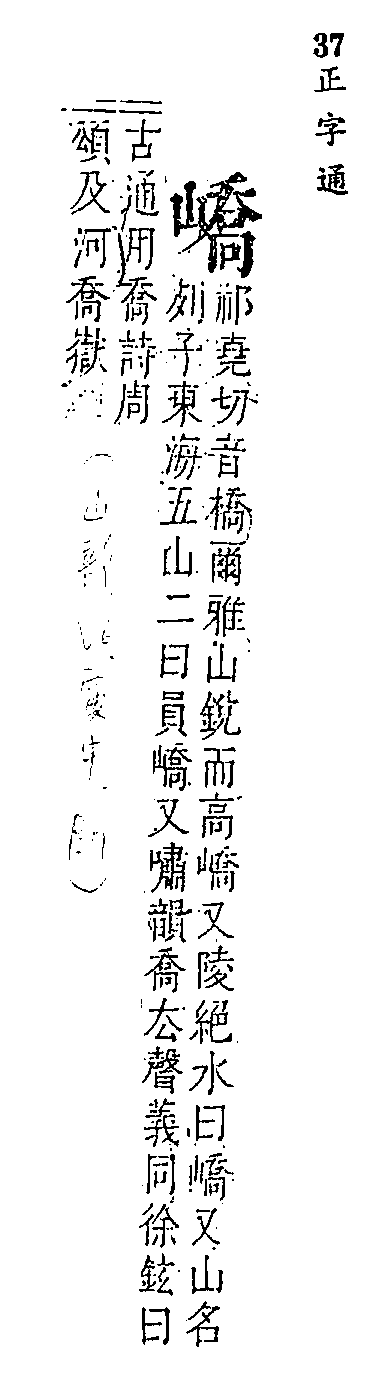 37 正字通
嶠
祁堯切音橋爾雅山銳而高嶠又陵絕水曰嶠又山名
列子東海五山二曰員嶠又嘯韻喬去聲義同徐鉉曰
古通用喬詩周
頌及河喬嶽